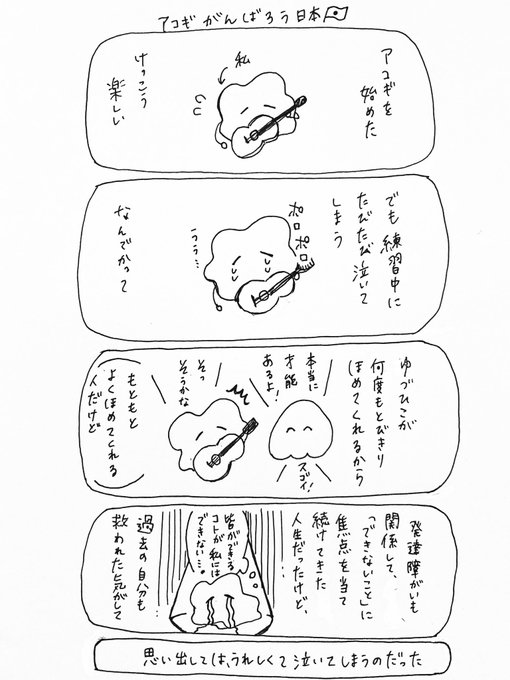 アコギがんばろう日本
アコギを
始めた
私
けっこう
楽しい
でも練習中に
たびたび泣いて
しまう
ポロポロ
うう…
なんでかって
ゆづひこが
何度もとびきり
ほめてくれるから
本当に
才能
あるよ!
スゴイ!
そっ
そうかな
もともと
よくほめてくれる
人だけど
発達障がいも
関係して、
「できないこと」に
焦点を当て
続けてきた
人生だったけど、
皆ができる
コトが私には
できない…。
過去の自分も
救われた気がして
思い出しては、うれしくて泣いてしまうのだった